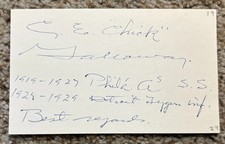 19
C. E. "Chick"
Galloway.
1919-1927 Phila A's S.S.
1928-1929 Detroit Tygers inf.
Best regards.
29